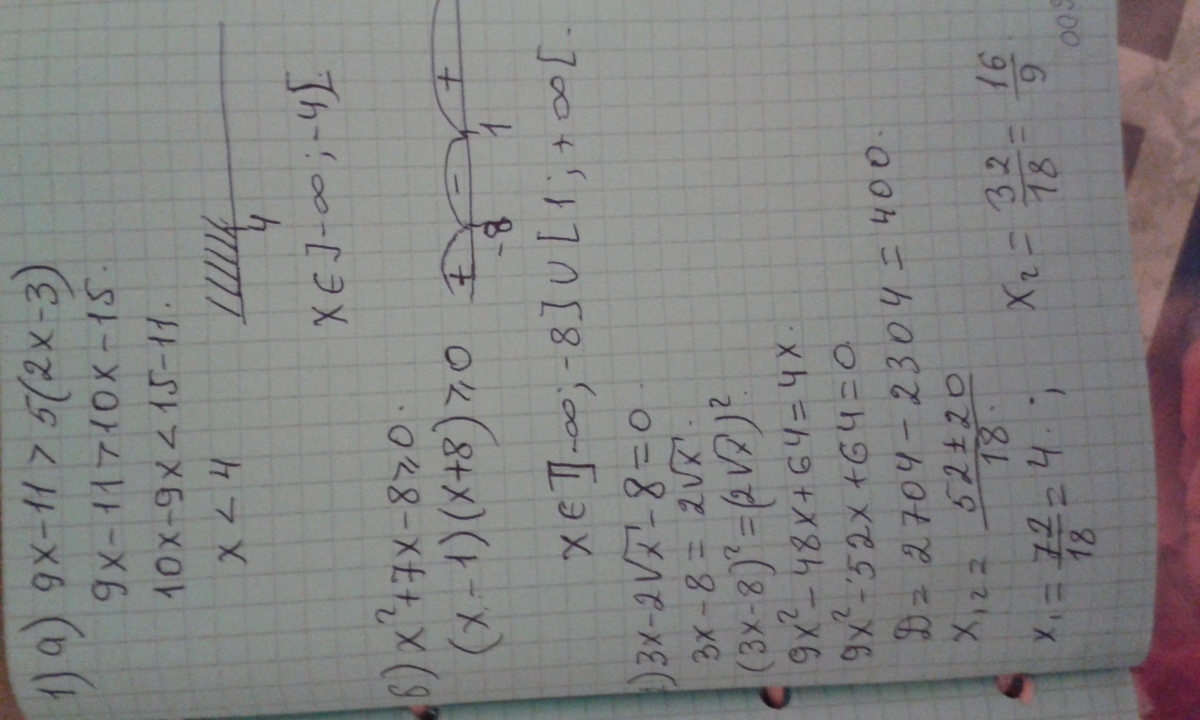 1) а) 9x-11 > 5(2x-3)
9x-11 > 10x-15.
10x-9x < 15-11.
x < 4
4
x ∈ ]-∞; -4[.
в) x²+7x-8 ⩾ 0.
(x-1)(x+8) ⩾ 0
+ - +
-8 1
x ∈ ]-∞; -8] ∪ [1; +∞[.
) 3x-2√x-8=0.
3x-8 = 2√x.
(3x-8)² = (2√x)².
9x²-48x+64=4x.
9x²-52x+64=0.
D = 2704-2304 = 400.
x₁,₂ = 52±20/18.
x₁ = 72/18 = 4. ; x₂ = 32/18 = 16/9.